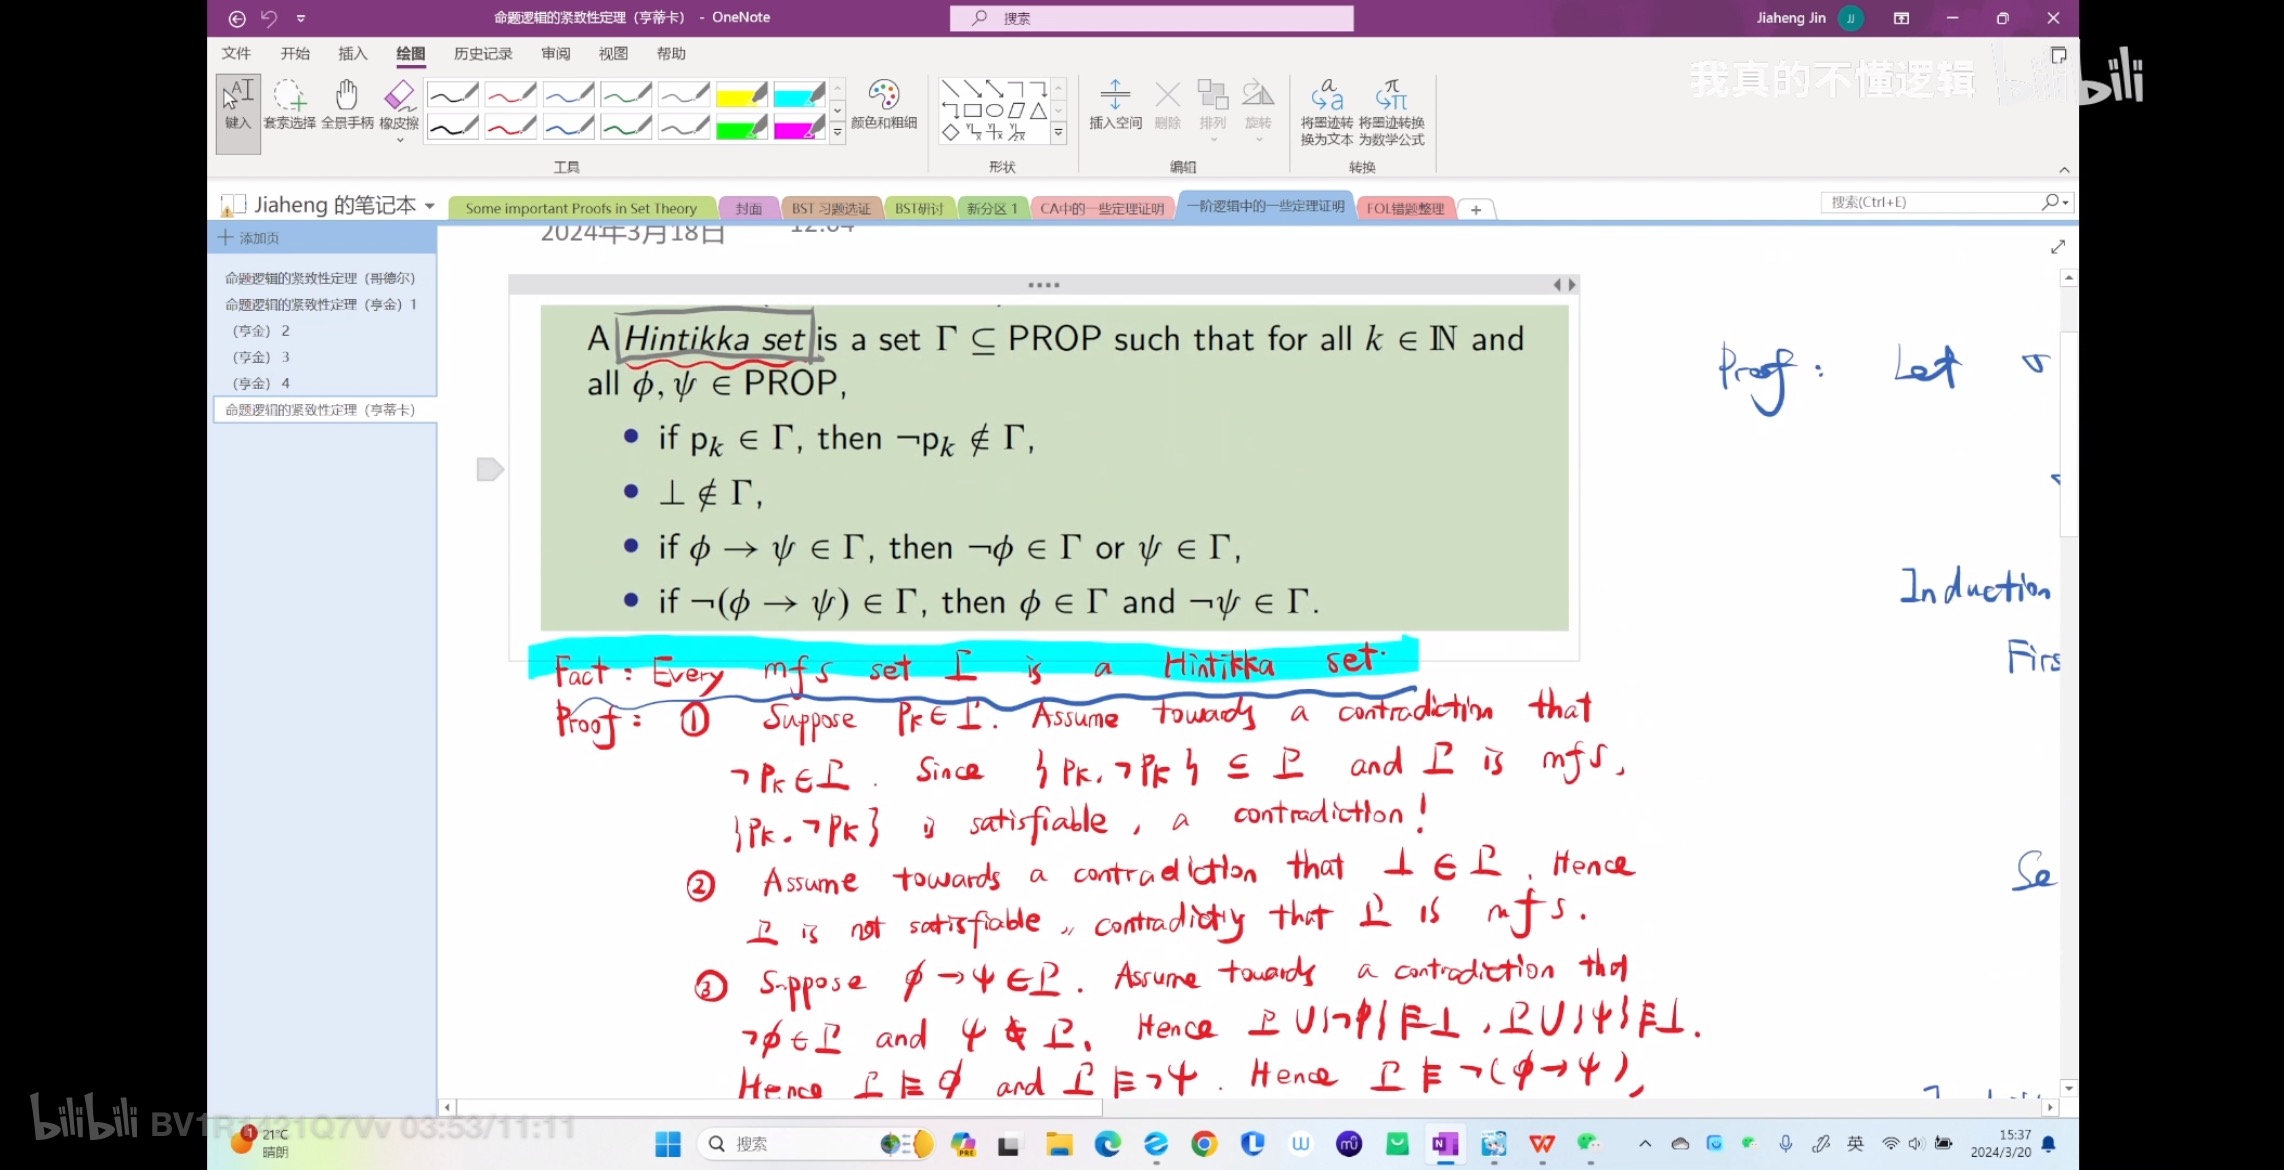 命题逻辑的紧致性定理（亨蒂卡） - OneNote
搜索
Jiaheng Jin
JJ
文件 开始 插入 绘图 历史记录 审阅 视图 帮助
我真的不懂逻辑 bilibili
键入 套索选择 全景手柄 橡皮擦
颜色和粗细
插入空间 删除 排列 旋转
将墨迹转换为文本 将墨迹转换为数学公式
工具 形状 编辑 转换
Jiaheng 的笔记本
Some important Proofs in Set Theory 封面 BST 习题选证 BST研讨 新分区 1 CA中的一些定理证明 一阶逻辑中的一些定理证明 FOL错题整理 +
搜索(Ctrl+E)
添加页
命题逻辑的紧致性定理（哥德尔）
命题逻辑的紧致性定理（亨金）1
（亨金） 2
（亨金） 3
（亨金） 4
命题逻辑的紧致性定理（亨蒂卡）
2024年3月18日 12:04
A Hintikka set is a set Γ ⊆ PROP such that for all k ∈ ℕ and
all ϕ, ψ ∈ PROP,
• if pₖ ∈ Γ, then ¬pₖ ∉ Γ,
• ⊥ ∉ Γ,
• if ϕ → ψ ∈ Γ, then ¬ϕ ∈ Γ or ψ ∈ Γ,
• if ¬(ϕ → ψ) ∈ Γ, then ϕ ∈ Γ and ¬ψ ∈ Γ.
Fact: Every mfs set Γ is a Hintikka set.
Proof: ① Suppose Pₖ ∈ Γ. Assume towards a contradiction that
¬Pₖ ∈ Γ. Since {Pₖ, ¬Pₖ} ⊆ Γ and Γ is mfs,
{Pₖ, ¬Pₖ} is satisfiable, a contradiction!
② Assume towards a contradiction that ⊥ ∈ Γ. Hence
Γ is not satisfiable, contradicty that Γ is mfs.
③ Suppose ϕ → ψ ∈ Γ. Assume towards a contradiction that
¬ϕ ∈ Γ and ψ ∉ Γ. Hence Γ ∪ {¬ϕ} ⊨ ⊥, Γ ∪ {ψ} ⊨ ⊥.
Hence Γ ⊨ ϕ and Γ ⊨ ¬ψ. Hence Γ ⊨ ¬(ϕ → ψ),
Proof: Let σ
Induction
Firs
Se
bilibili BV1R1421Q7Vv 03:53/11:11
1
21°C
晴朗
搜索
PRE
英
15:37
2024/3/20